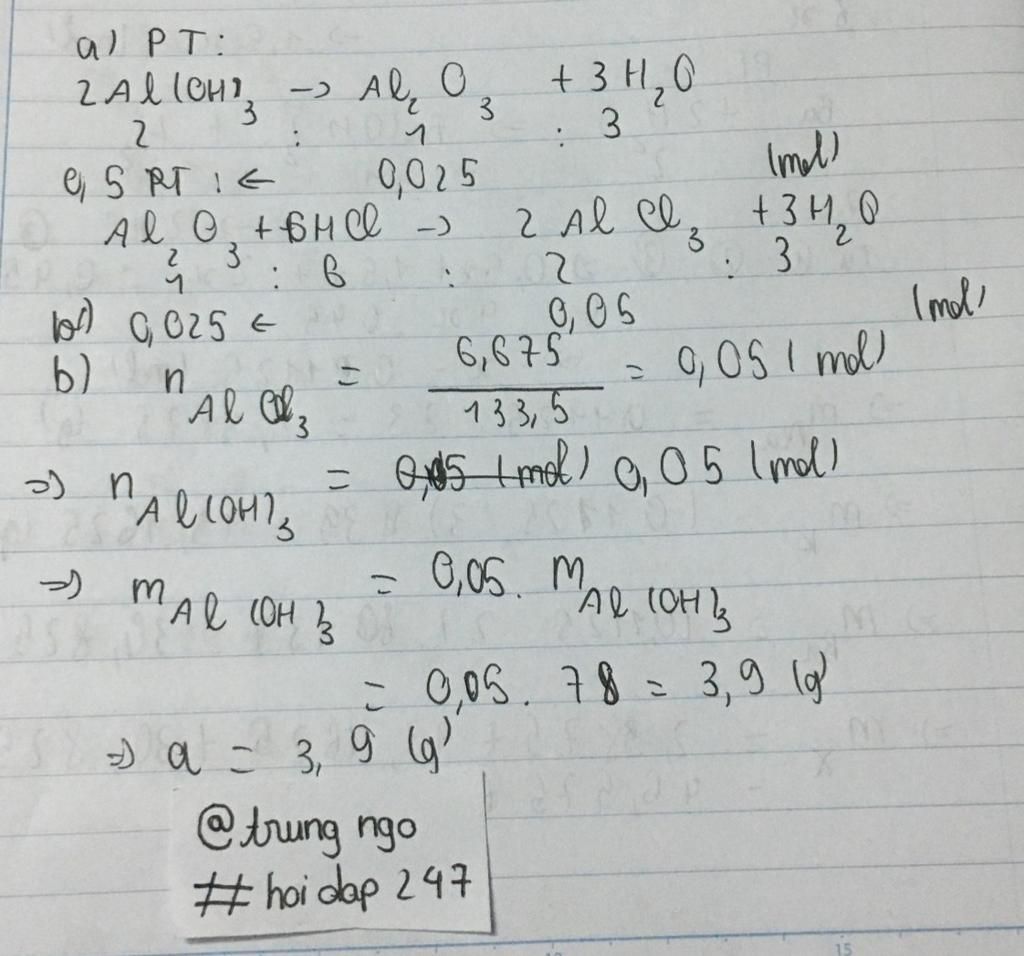 a) PT:
2Al(OH)3 -> Al2O3 + 3H2O
2 : 1 : 3
0,5 PT: <- 0,025 (mol)
Al2O3 + 6HCl -> 2AlCl3 + 3H2O
1 : 6 : 2 : 3
0,025 <- 0,05 (mol)
b) nAlCl3 = 6,675/133,5 = 0,05 (mol)
=> nAl(OH)3 = 0,05 (mol) 0,05 (mol)
=> mAl(OH)3 = 0,05. MAl(OH)3
= 0,05. 78 = 3,9 (g)
=> a = 3,9 (g)
@trung ngo
# hoi dap 247
15